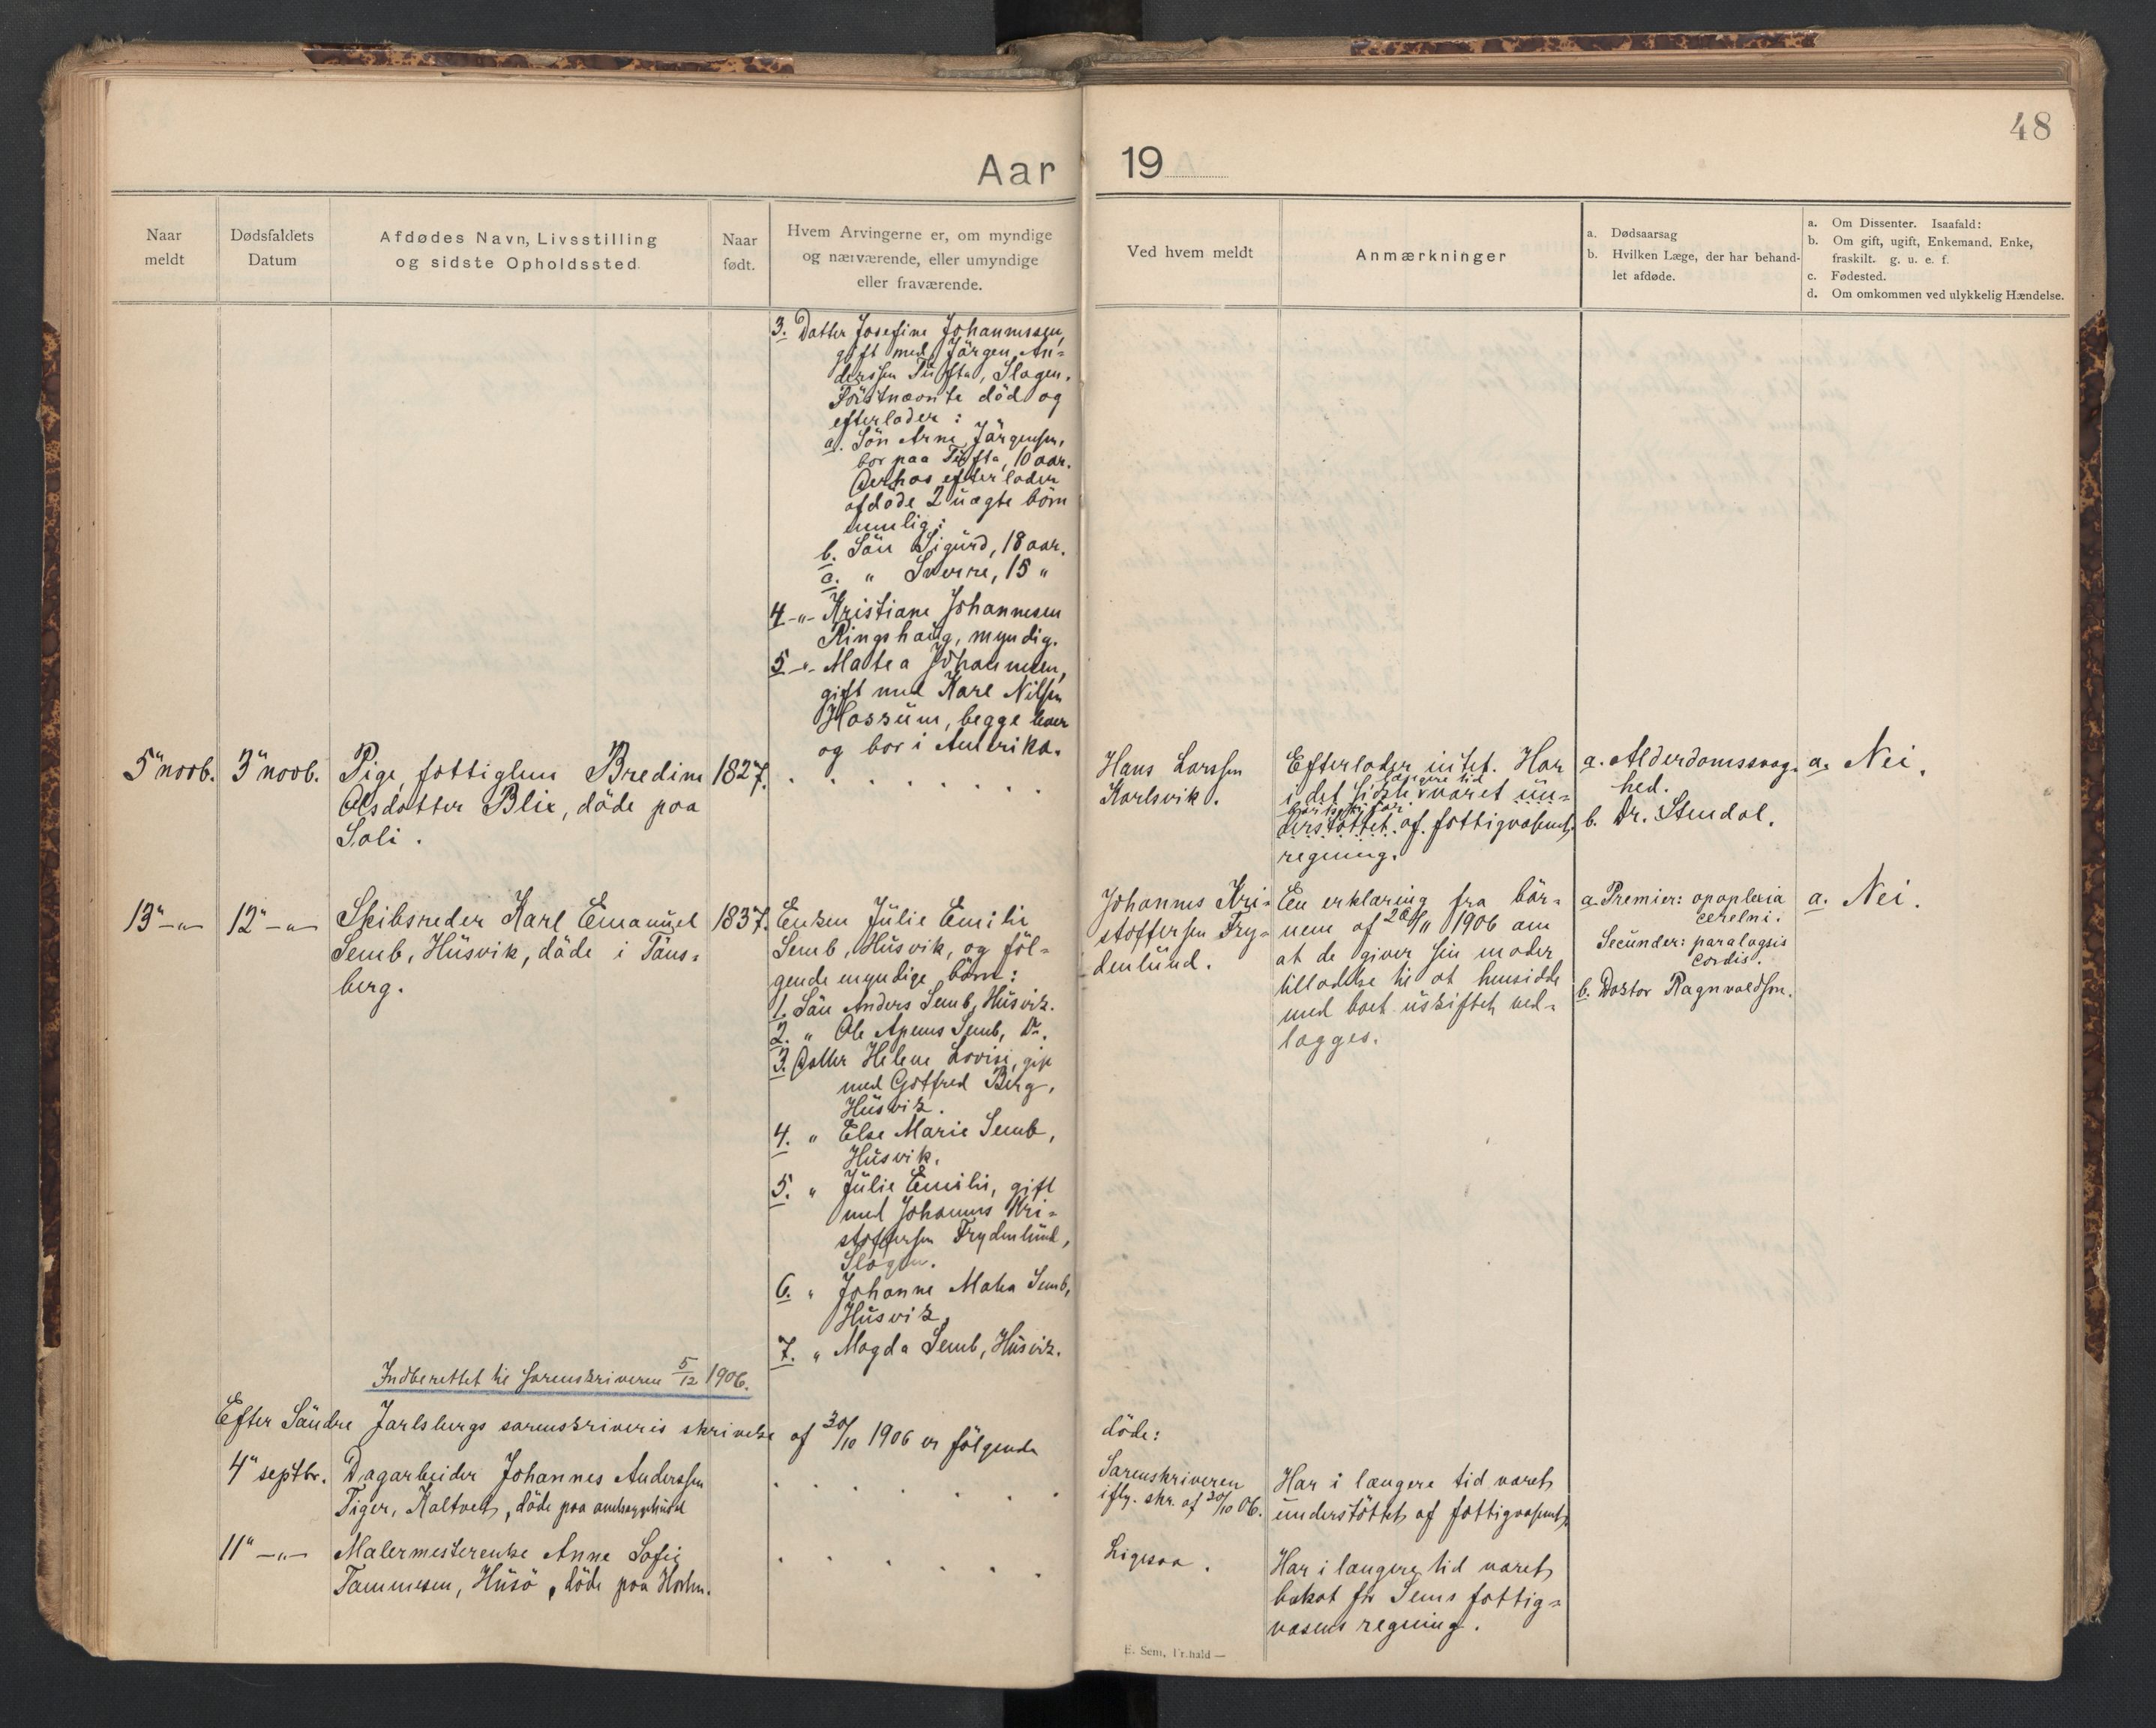 48
Aar 19
Naar
meldt
Dødsfaldets
Datum
Afdødes Navn, Livsstilling
og sidste Opholdssted.
Naar
født.
Hvem Arvingerne er, om myndige
og nærværende, eller umyndige
eller fraværende.
Ved hvem meldt
Anmærkninger
a. Dødsaarsag
b. Hvilken Læge, der har behand-
let afdøde.
a. Om Dissenter. Isaafald:
b. Om gift, ugift, Enkemand, Enke,
fraskilt. g. u. e. f.
c. Fødested.
d. Om omkommen ved ulykkelig Hændelse.
3. Datter Josefine Johannessen,
gift med Jörgen An=
derssen Tüfta, Slagen.
Förstnævnte död og
efterlader:
a. Sön Arne Jörgensen,
bor paa Tüfta, 10 aar.
Derhos efterlader
afdöde 2 uægte börn
nemlig:
b. Sön Sigürd, 18 aar.
c. " Sverre, 15 "
4 -"- Kristiane Johannesen
Ringshaüg, myndig.
5 -"- Matea Johannesen,
gift med Karl Nilsen
Hassüm, begge lever
og bor i Amerika.
5" novb.
3" novb.
Pige, fattiglem Bredine
Olsdatter Blix, döde paa
Soli.
1827.
. . . . . . . .
Hans Larssen
Karlsvik.
Efterlader intet. Har
i det sidste længere tid været ün=
derstöttet af fattigvæsenets
regning.
a. Alderdomssvag=
hed.
b. Dr. Stendal.
a. Nei.
13" -"-
12" -"-
Skibsreder Karl Emanüel
Semb, Hüsvik, döde i Töns=
berg.
1837.
Enken Jülie Emilie
Semb, Hüsvik, og föl=
gende myndige börn:
1. Sön Anders Semb, Hüsvik.
2. " Ole Apenus Semb, Do.
3. Datter Helene Lovise, gift
med Gotfred Berg,
Hüsvik.
4. " Else Marie Semb,
Hüsvik.
5. " Jülie Emilie, gift
med Johannes Kri=
stoffersen Frydenlünd,
Slagen.
6. " Johanne Matea Semb,
Hüsvik.
7. " Magda Semb, Hüsvik.
Johannes Kri=
stoffersen Fry=
denlünd.
En erklæring fra bör=
nene af 26/11 1906 om
at de giver sin moder
tilladelse til at hensidde
med boet üskiftet ved=
lægges.
a. Premier: apoplexia
cerelni.
Secünder: paralagsis
cordis.
b. Doktor Ragnvaldsen.
a. Nei.
Indberettet til sorenskriveren 5/12 1906.
Efter Söndre Jarlsbergs sorenskriveris skrivelse af 30/10 1906 er fölgende döde:
4" septbr.
Dagarbeider Johannes Anderssen
Tiger, Kaltvedt, döde paa amtssygehüset
. . . . . .
Sorenskriveren
iflg. skr. af 30/10 06.
Har i længere tid været
ünderstöttet af fattigvæsenet.
11" -"-
Malermesterenke Anne Sofie
Tammesen, Hüsö, döde paa Horten.
. . . . . .
Ligesaa.
Har i længere tid været
bekost for Sems fattig=
væsens regning.
E. Sem, Fr.hald —